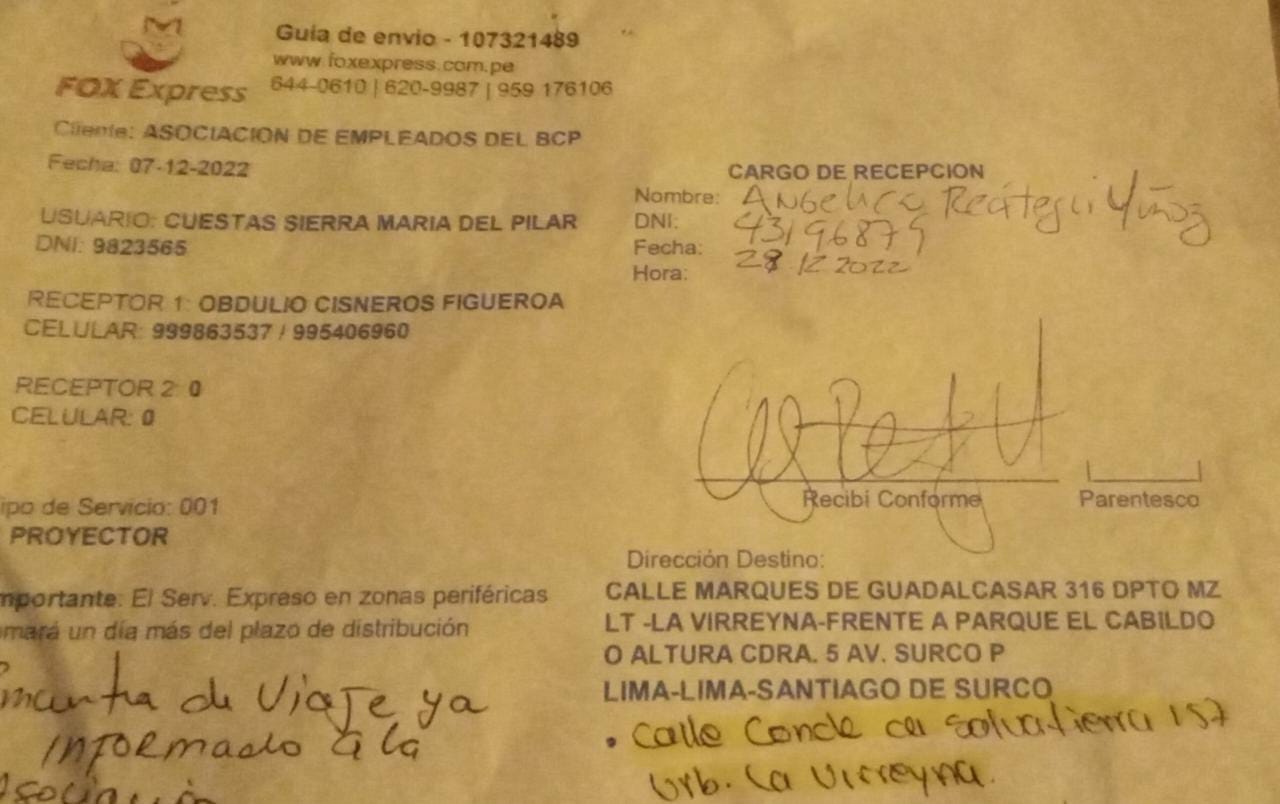 Guía de envío - 107321489
www.foxexpress.com.pe
644-0610 | 620-9987 | 959 176106
FOX Express
Cliente: ASOCIACION DE EMPLEADOS DEL BCP
Fecha: 07-12-2022
USUARIO: CUESTAS SIERRA MARIA DEL PILAR
DNI: 9823565
RECEPTOR 1: OBDULIO CISNEROS FIGUEROA
CELULAR: 999863537 / 995406960
RECEPTOR 2: 0
CELULAR: 0
ipo de Servicio: 001
PROYECTOR
mportante: El Serv. Expreso en zonas periféricas
omará un día más del plazo de distribución
de Viaje ya
INFORmado a la
Asociación
CARGO DE RECEPCION
Nombre: Angelica Reátegui Muñoz
DNI: 43196879
Fecha: 28 12 2022
Hora:
Recibi Conforme
Parentesco
Dirección Destino:
CALLE MARQUES DE GUADALCASAR 316 DPTO MZ
LT -LA VIRREYNA-FRENTE A PARQUE EL CABILDO
O ALTURA CDRA. 5 AV. SURCO P
LIMA-LIMA-SANTIAGO DE SURCO
• Calle Conde de Salvatierra 157
Urb. La Virreyna.